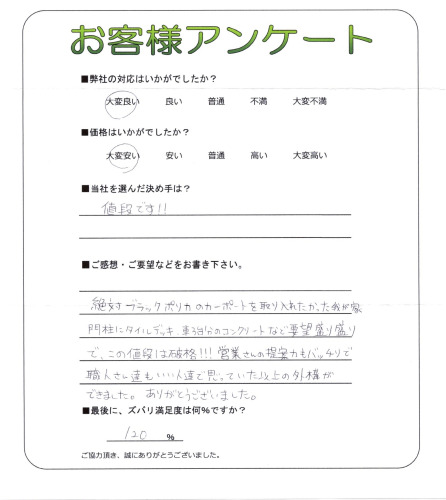 お客様アンケート
■弊社の対応はいかがでしたか？
大変良い 良い 普通 不満 大変不満
■価格はいかがでしたか？
大変安い 安い 普通 高い 大変高い
■当社を選んだ決め手は？
値段です!!
■ご感想・ご要望などをお書き下さい。
絶対ブラックポリカのカーポートを取り入れたかった我が家
門柱にタイルデッキ、車3台分のコンクリートなど要望盛り盛り
で、この値段は破格!!! 営業さんの提案力もバッチリで
職人さん達もいい人達で思っていた以上の外構が
できました。ありがとうございました。
■最後に、ズバリ満足度は何％ですか？
120 ％
ご協力頂き、誠にありがとうございました。